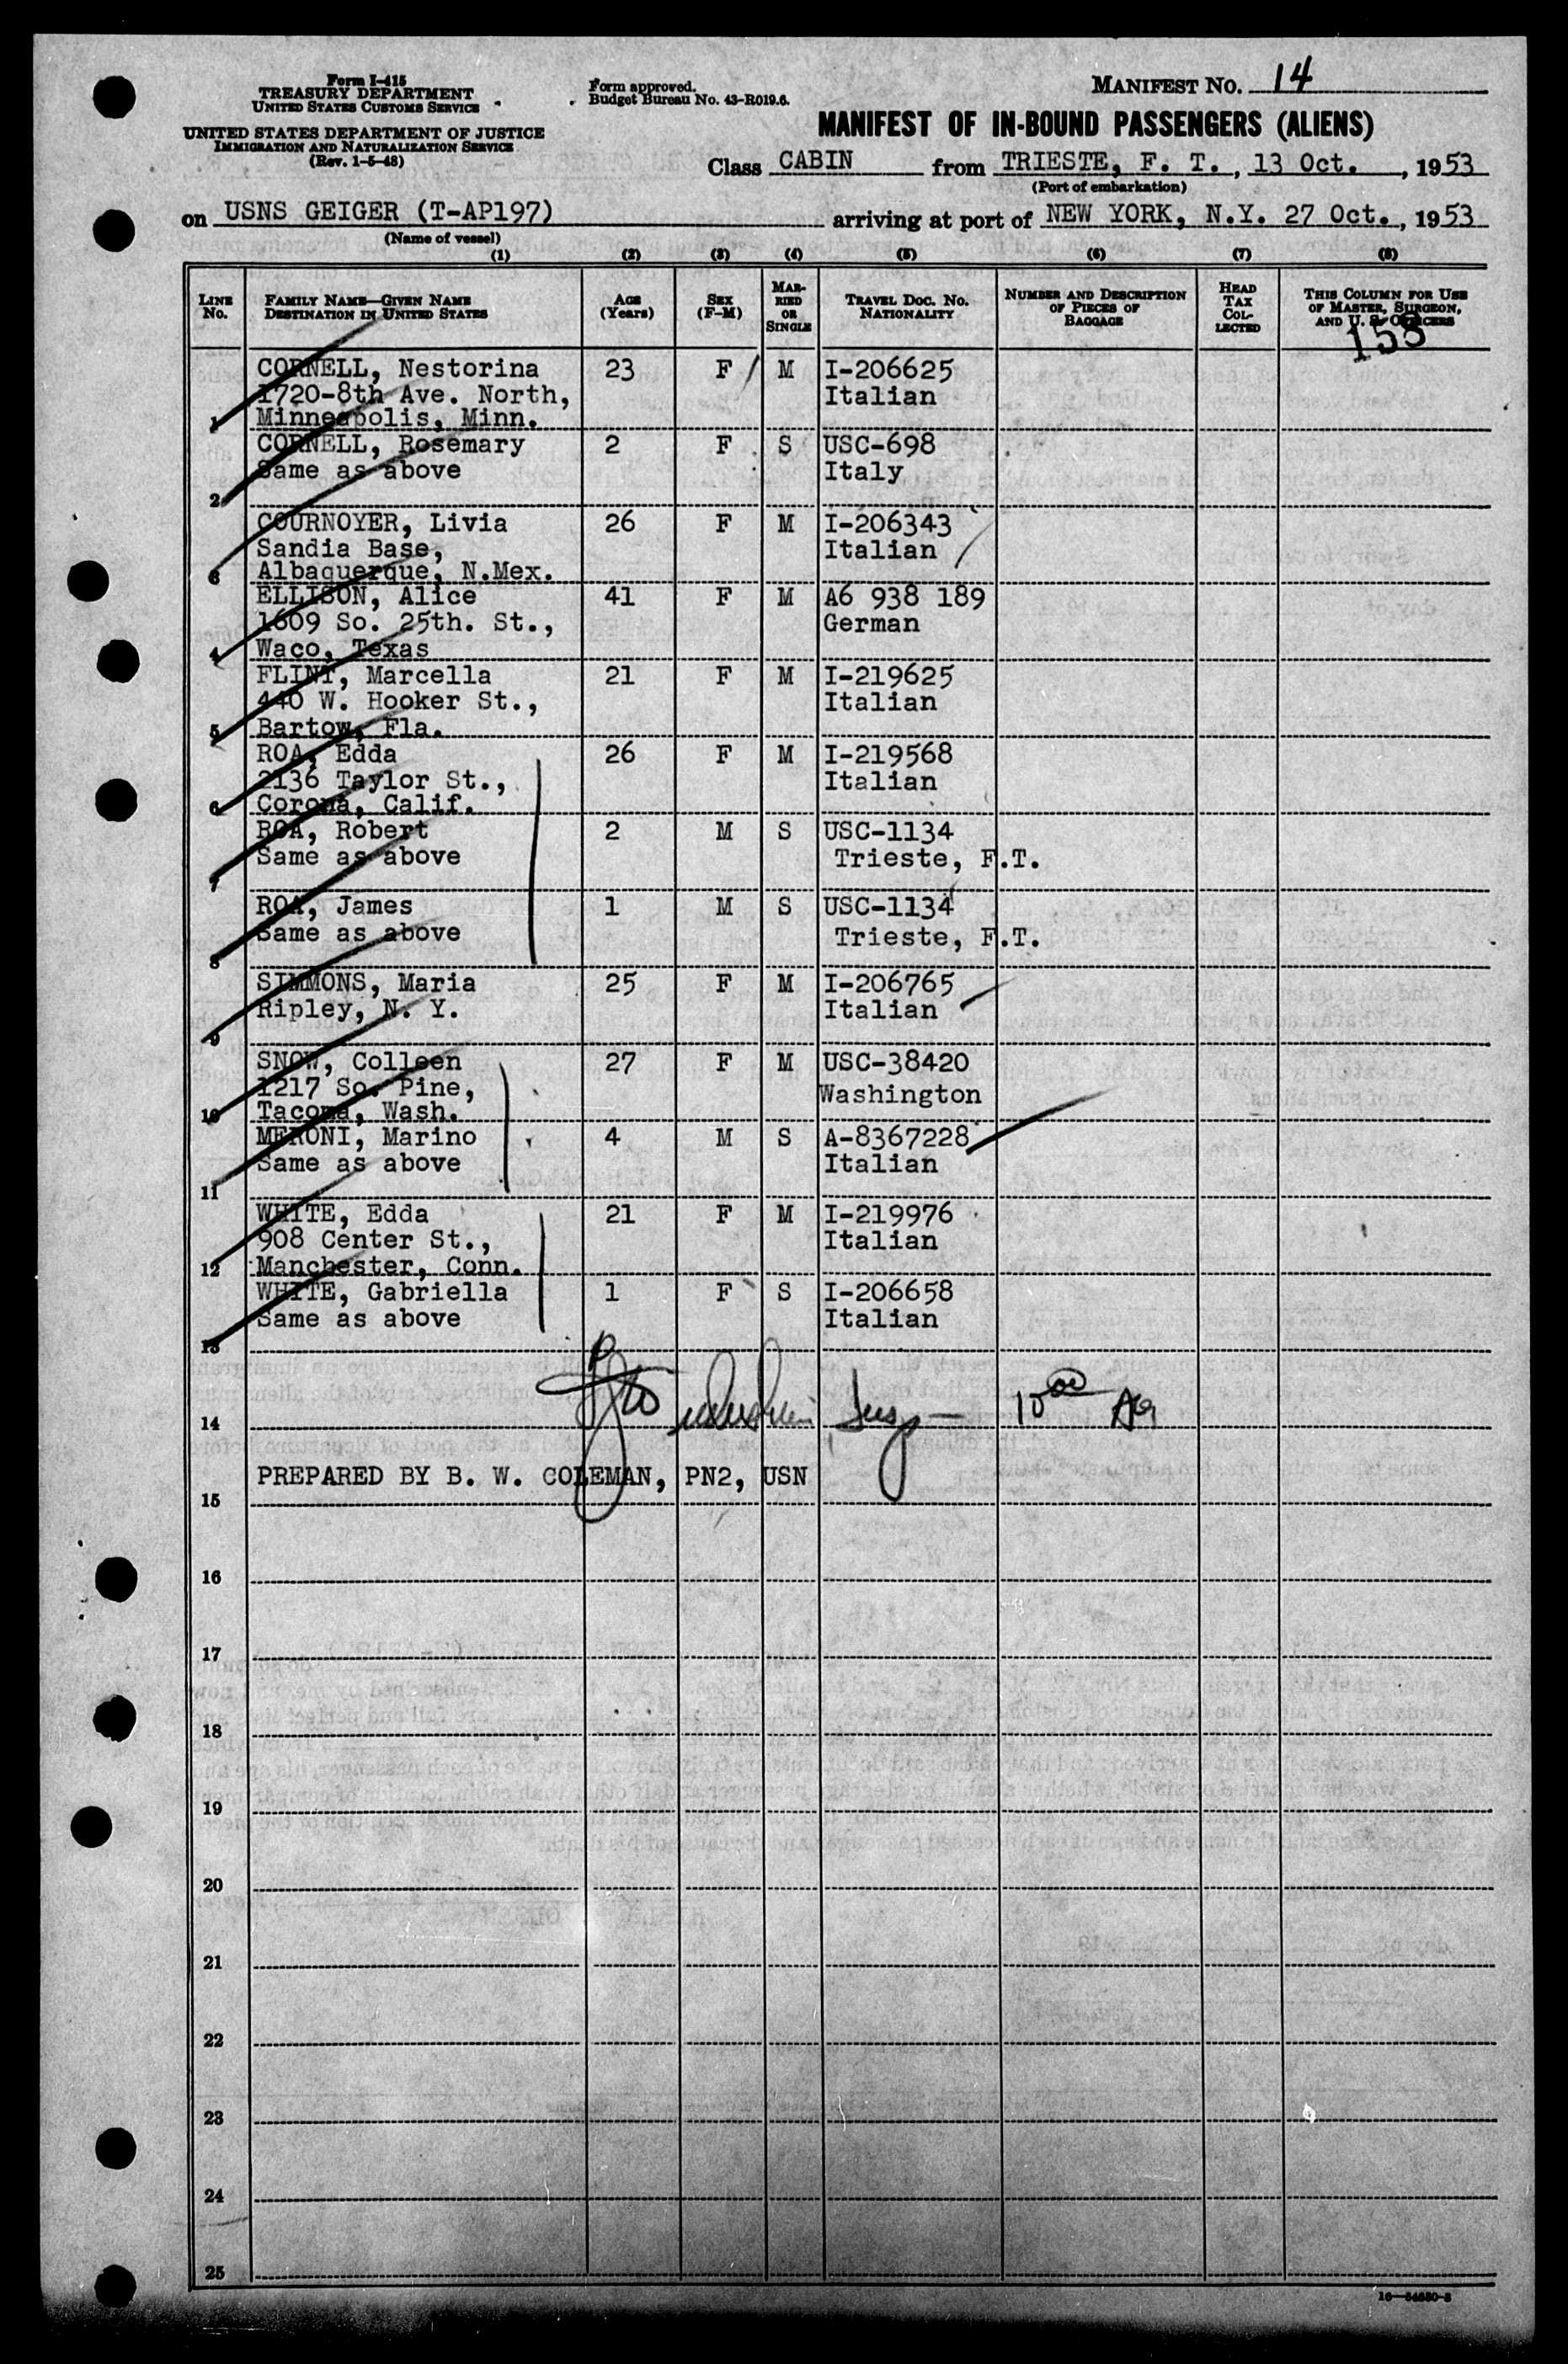 Form I-415
TREASURY DEPARTMENT
UNITED STATES CUSTOMS SERVICE
UNITED STATES DEPARTMENT OF JUSTICE
IMMIGRATION AND NATURALIZATION SERVICE
(Rev. 1-5-48)
Form approved.
Budget Bureau No. 43-R019.6.
MANIFEST NO. 14
MANIFEST OF IN-BOUND PASSENGERS (ALIENS)
Class CABIN from TRIESTE, F. T., 13 Oct., 1953
(Port of embarkation)
on USNS GEIGER (T-AP197) arriving at port of NEW YORK, N.Y. 27 Oct., 1953
(Name of vessel)
(1) (2) (3) (4) (5) (6) (7) (8)
LINE No. FAMILY NAME—GIVEN NAME DESTINATION IN UNITED STATES AGE (Years) SEX (F-M) MARRIED OR SINGLE TRAVEL DOC. NO. NATIONALITY NUMBER AND DESCRIPTION OF PIECES OF BAGGAGE HEAD TAX COLLECTED THIS COLUMN FOR USE OF MASTER, SURGEON, AND U. S. OFFICERS
158
CORNELL, Nestorina 23 F M I-206625
1720-8th Ave. North, Italian
1 Minneapolis, Minn.
CORNELL, Rosemary 2 F S USC-698
Same as above Italy
2
COURNOYER, Livia 26 F M I-206343
Sandia Base, Italian
3 Albaquerque, N.Mex.
ELLISON, Alice 41 F M A6 938 189
1609 So. 25th. St., German
4 Waco, Texas
FLINT, Marcella 21 F M I-219625
440 W. Hooker St., Italian
5 Bartow, Fla.
ROA, Edda 26 F M I-219568
2136 Taylor St., Italian
6 Corona, Calif.
ROA, Robert 2 M S USC-1134
Same as above Trieste, F.T.
7
ROA, James 1 M S USC-1134
Same as above Trieste, F.T.
8
SIMMONS, Maria 25 F M I-206765
Ripley, N. Y. Italian
9
SNOW, Colleen 27 F M USC-38420
1217 So. Pine, Washington
10 Tacoma, Wash.
MERONI, Marino 4 M S A-8367228
Same as above Italian
11
WHITE, Edda 21 F M I-219976
908 Center St., Italian
12 Manchester, Conn.
WHITE, Gabriella 1 F S I-206658
Same as above Italian
13
14
PREPARED BY B. W. COLEMAN, PN2, USN
15
16
17
18
19
20
21
22
23
24
25